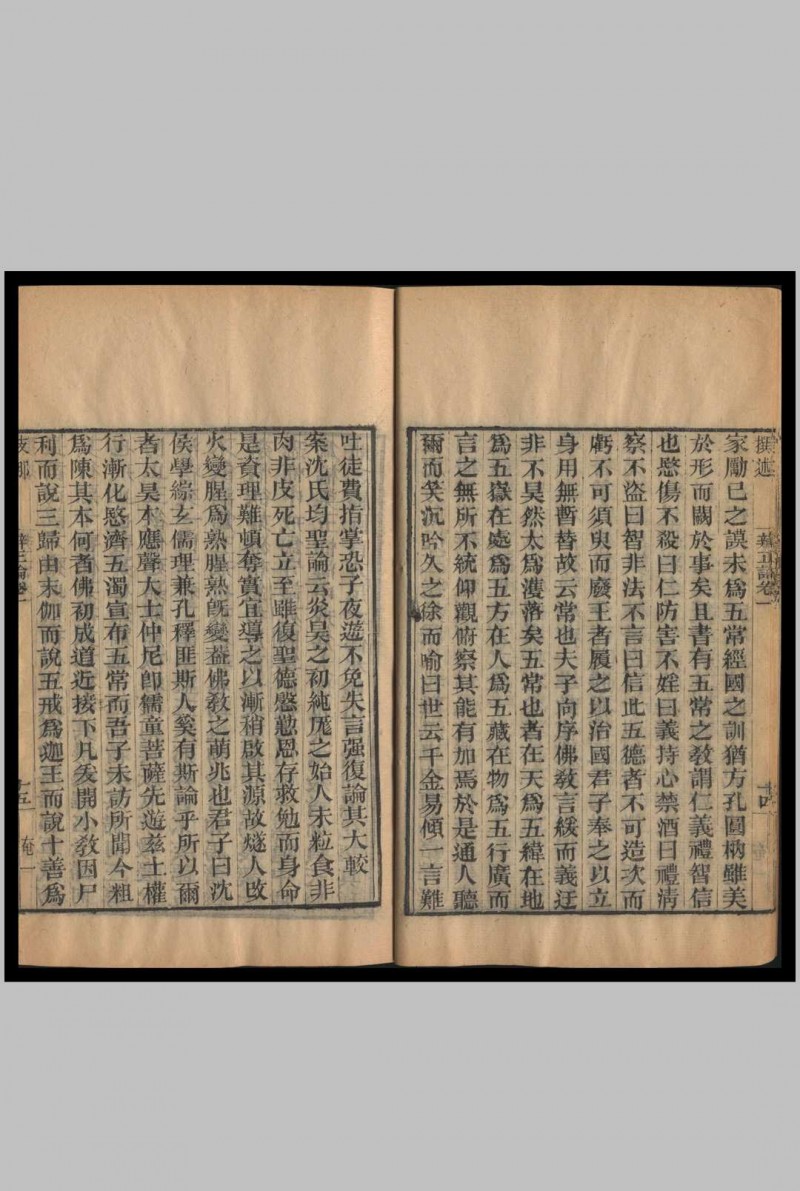 撰述
辯正論卷一
十四
家勵已之謨未爲五常經國之訓猶方孔圓枘雖美
於形而闕於事矣且書有五常之教謂仁義禮智信
也愍傷不殺曰仁防害不婬曰義持心禁酒曰禮清
察不盜曰智非法不言曰信此五德者不可造次而
虧不可須臾而廢王者履之以治國君子奉之以立
身用無暫替故云常也夫子向序佛教言緩而義迂
非不昊然太爲濩落矣五常也者在天爲五緯在地
爲五嶽在處爲五方在人爲五藏在物爲五行廣而
言之無所不統仰觀俯察其能有加焉於是通人聽
爾而笑沉吟久之徐而喻曰世云千金易傾一言難
吐徒費指掌恐子夜遊不免失言强復論其大較
案沈氏均聖論云炎昊之初純厖之始人未粒食非
肉非皮死亡立至雖復聖德慇懃恩存救勉而身命
是資理難頓奪實宜導之以漸稍啟其源故燧人攺
火變腥爲熟腥熟旣變葢佛教之萌兆也君子曰沈
侯學綜玄儒理兼孔釋匪斯人奚有斯論乎所以爾
者太昊本應聲大士仲尼卽儒童菩薩先遊茲土權
行漸化愍濟五濁宣布五常而吾子未訪所聞今粗
爲陳其本何者佛初成道近接下凡爰開小教因尸
利而說三歸由末伽而說五戒爲迦王而說十善爲
支那
辯正論卷一
十五
奄一